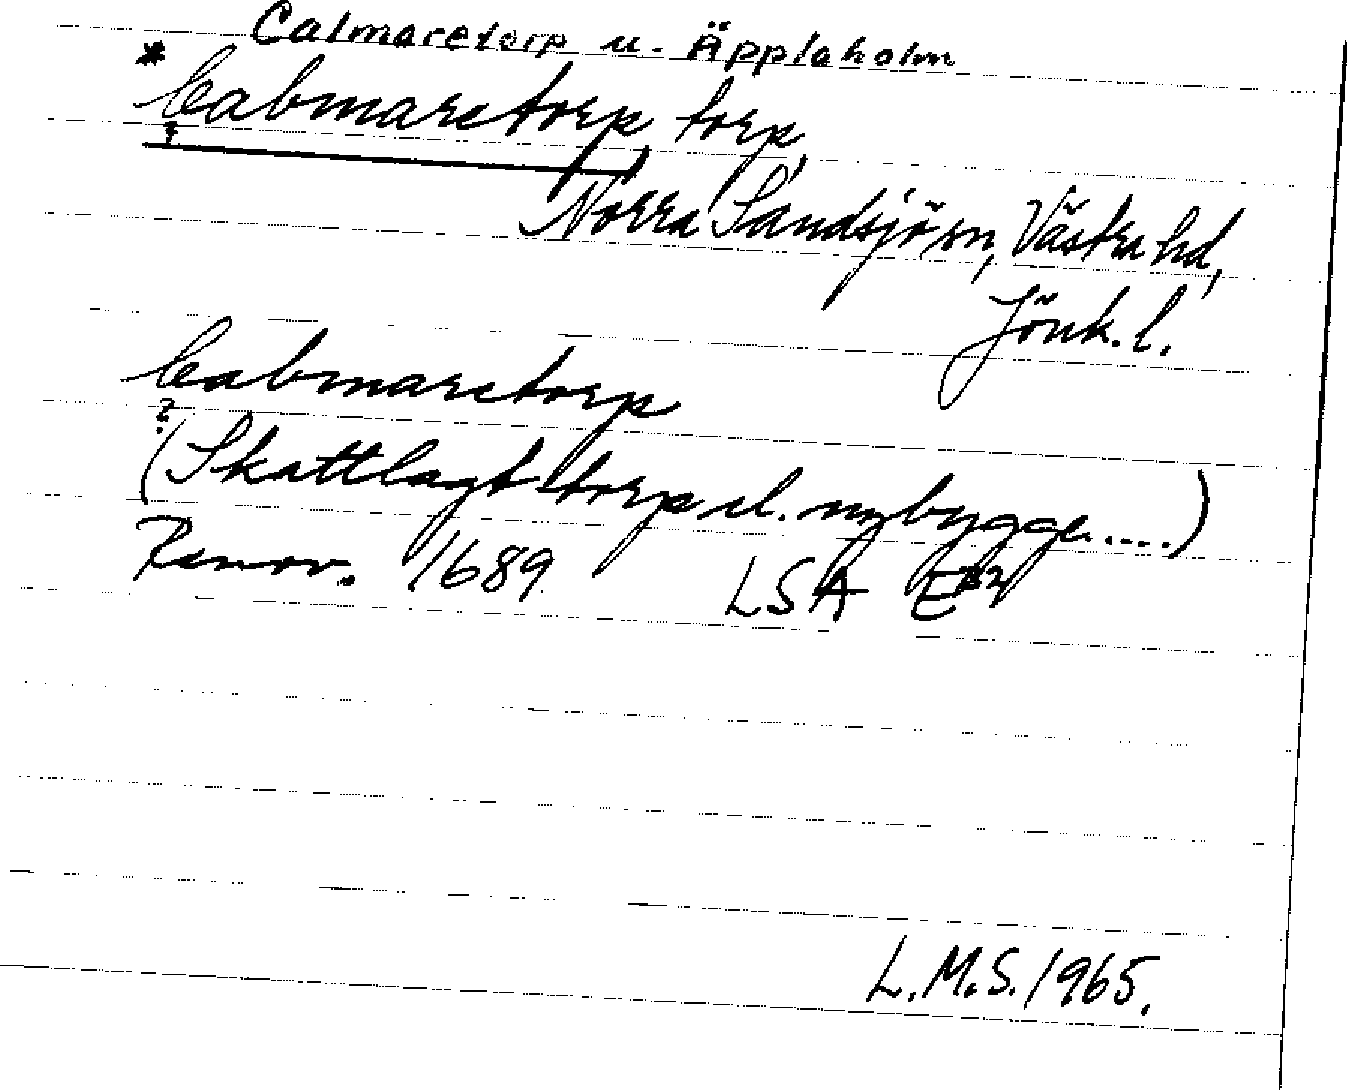 Calmaretorp u. Äpplaholm
* Cabmaretorp, torp,
?
Norra Sandsjö sn, Västra hd,
Jönk. l.
Cabmaretorp
?
(Skattlagt torp el. nybygge....)
Renov. 1689 LSA
L.M.S. 1965.